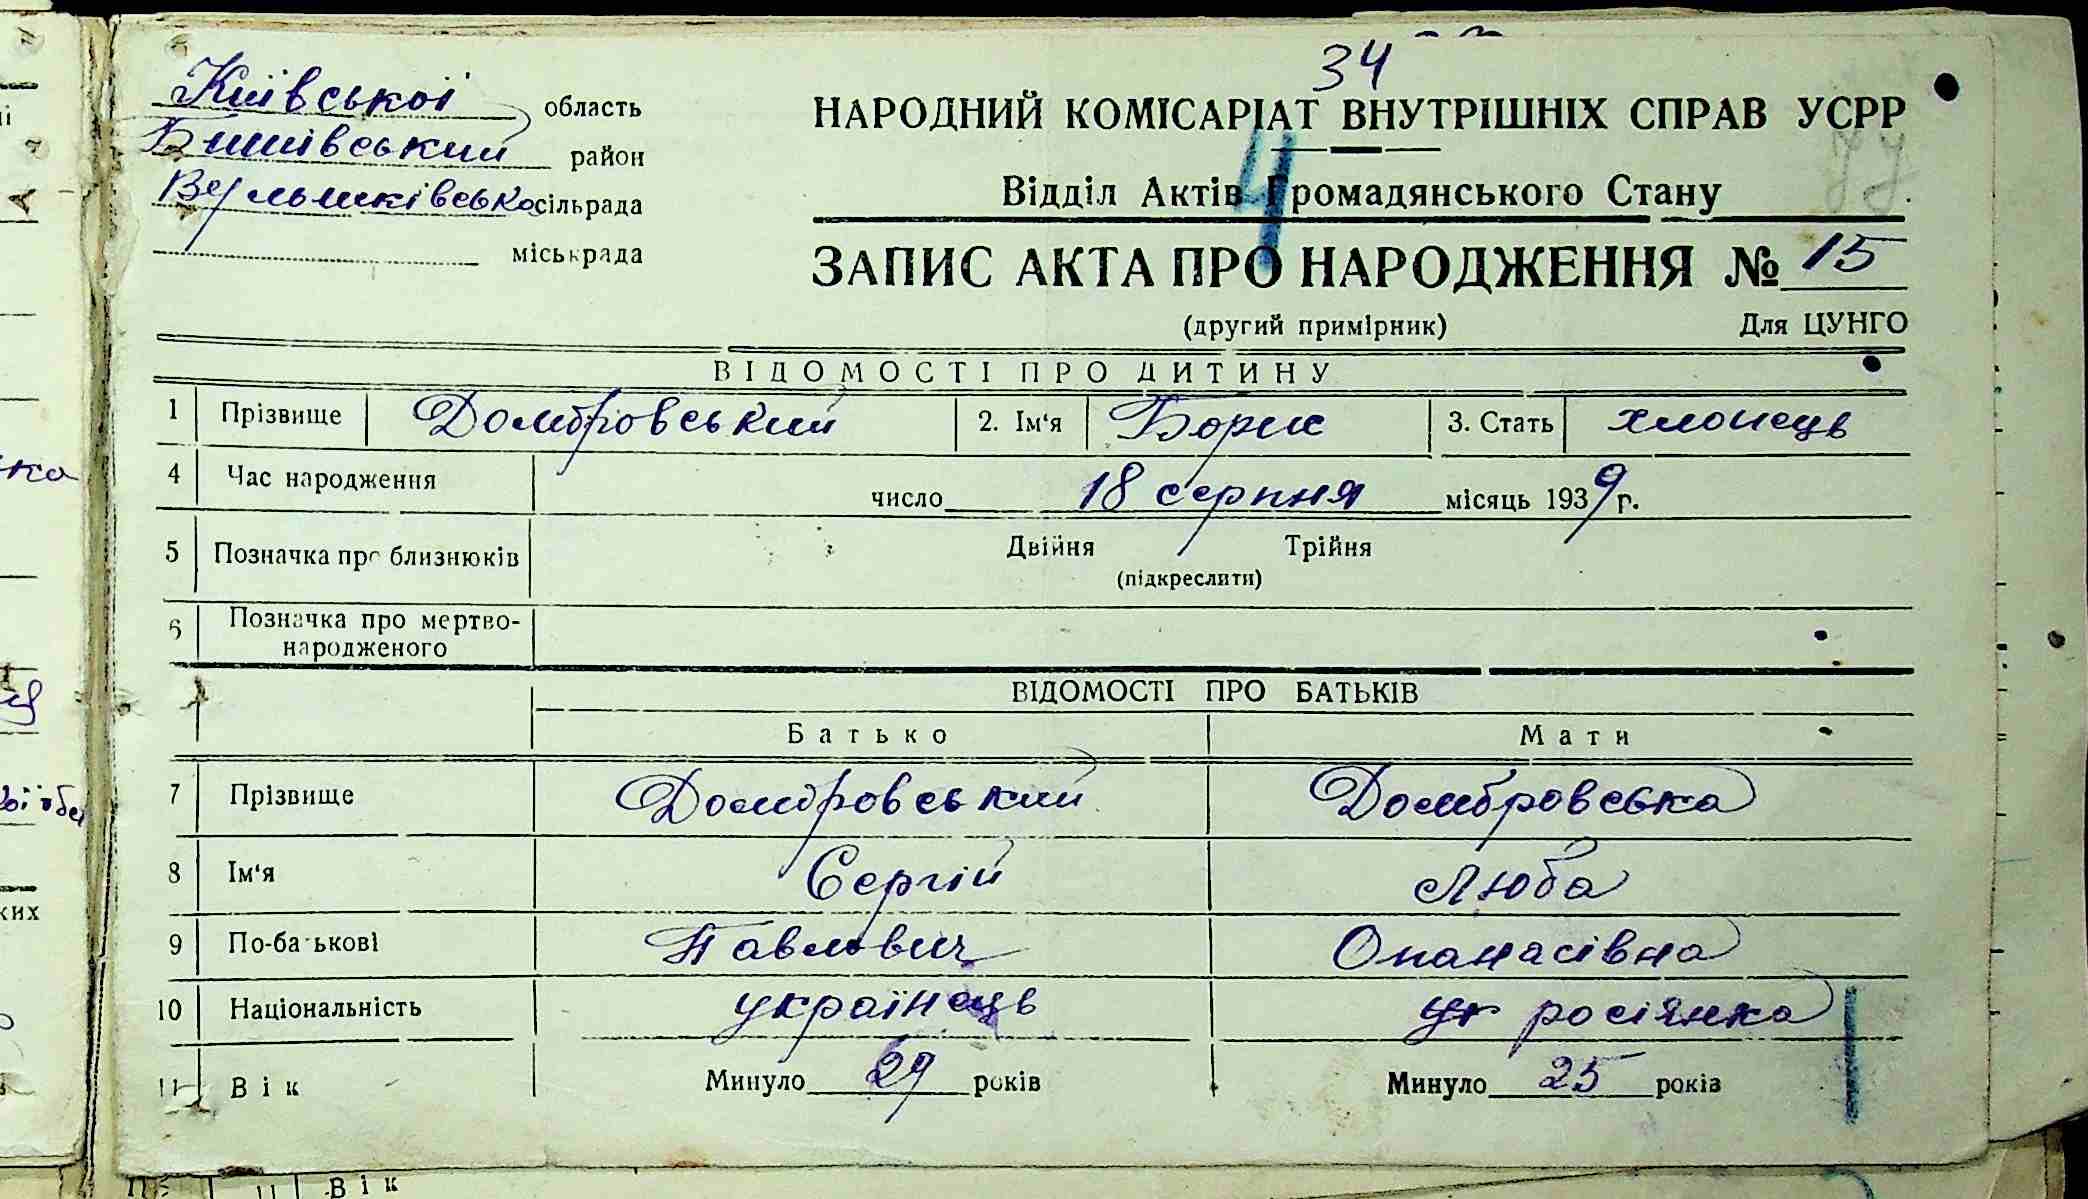 34
Київської область
НАРОДНИЙ КОМІСАРІАТ ВНУТРІШНІХ СПРАВ УСРР
район
4
Відділ Актів Громадянського Стану
сільрада
міськрада
ЗАПИС АКТА ПРО НАРОДЖЕННЯ № 15
(другий примірник) Для ЦУНГО
ВІДОМОСТІ ПРО ДИТИНУ
1 Прізвище Домбровський 2. Ім'я Борис 3. Стать хлопець
4 Час народження число 18 серпня місяць 1939 р.
5 Позначка про близнюків Двійня Трійня
(підкреслити)
6 Позначка про мертво-
народженого
ВІДОМОСТІ ПРО БАТЬКІВ
Батько Мати
7 Прізвище Домбровський Домбровська
8 Ім'я Сергій Люба
9 По-батькові Павлович Опанасівна
10 Національність українець ук росіянка
11 Вік Минуло 29 років Минуло 25 років
ких
11 Вік